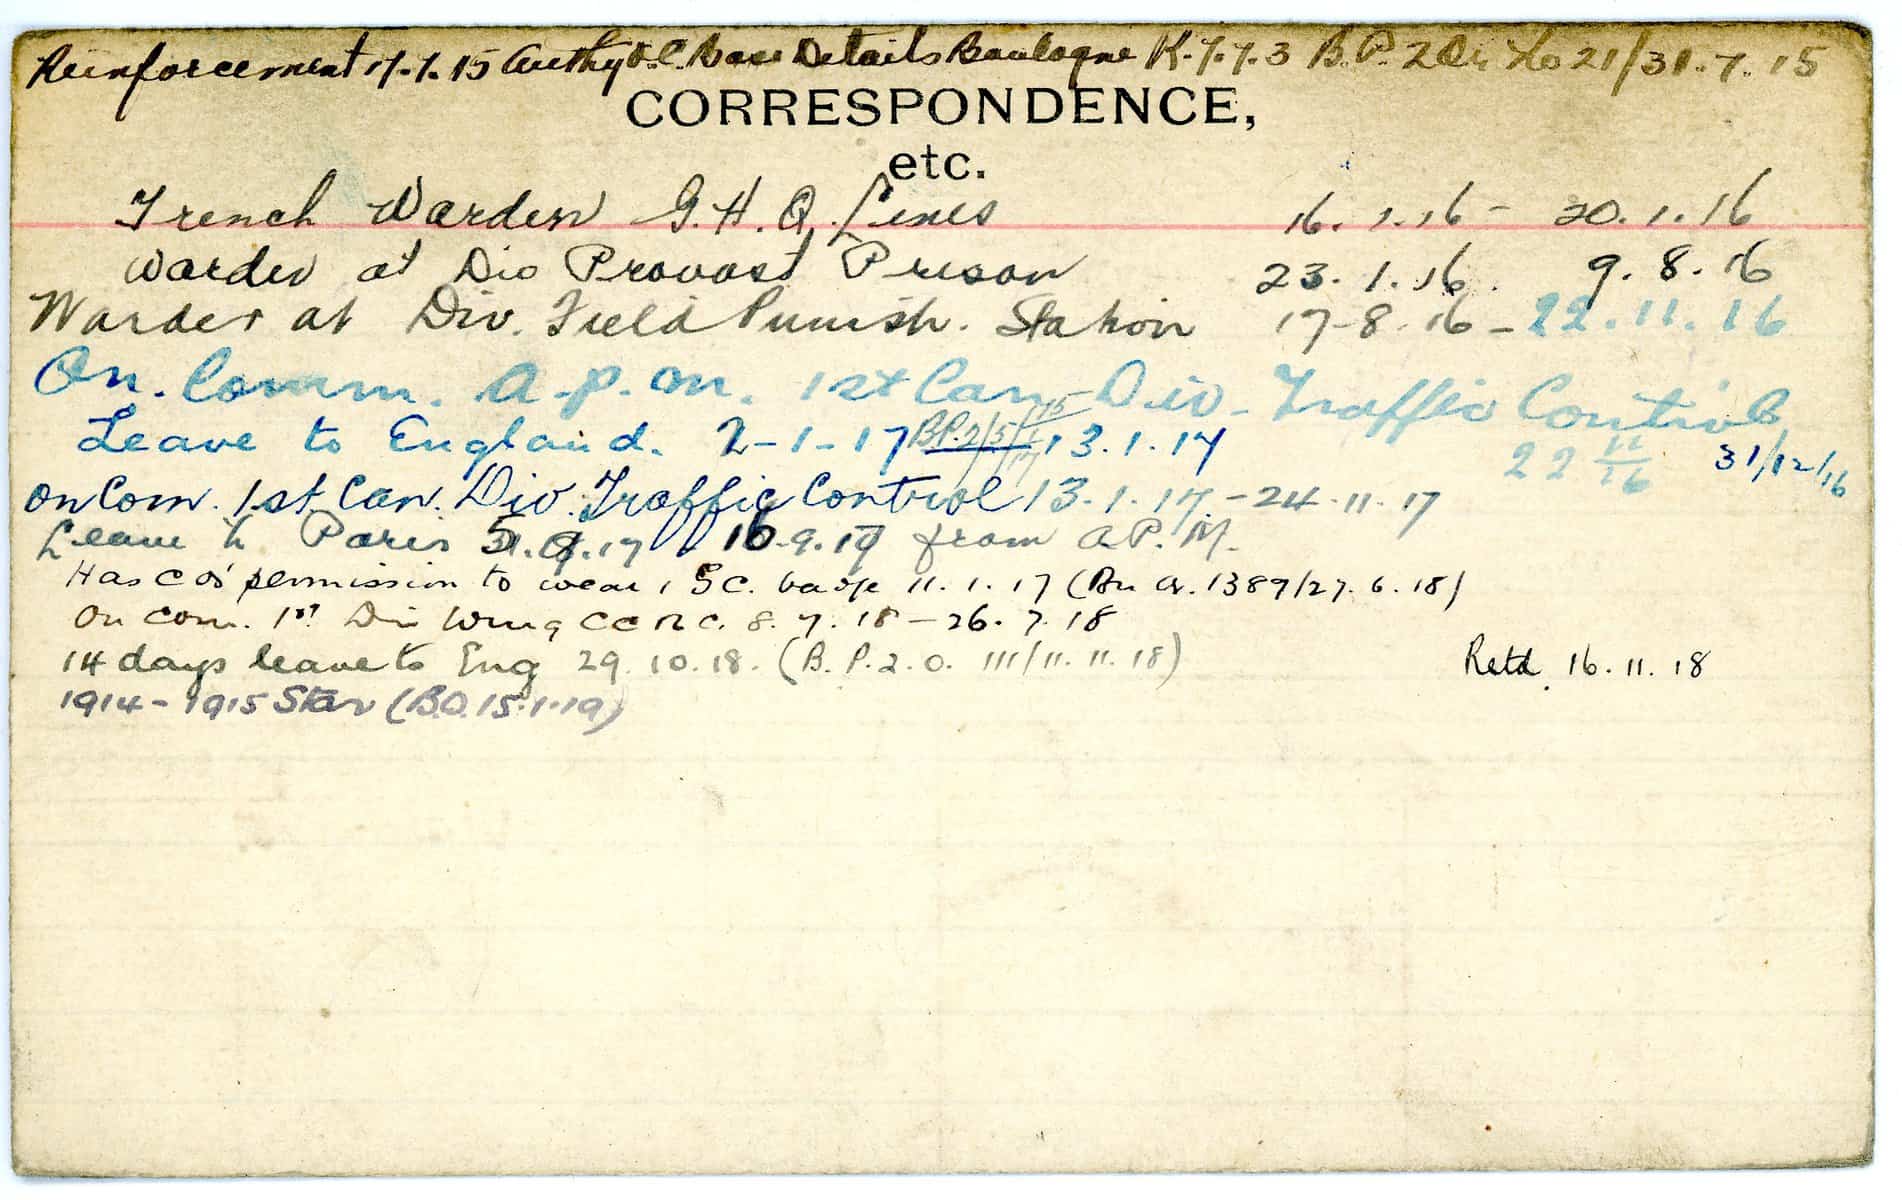 Reinforcement 17.7.15 Authy O.C. Base Details Boulogne K.7.7.3 B.P. 2 Or No 21/31.7.15
CORRESPONDENCE,
etc.
Trench Warden G.H.Q. Lines 16.1.16 - 20.1.16
Warder at Div Provost Prison 23.1.16. 9.8.16
Warder at Div. Field Punish. Station 17-8.16 - 22.11.16
On. Comm. A.P.M. 1st Can Div. Traffic Control
22 11/16 31/12/16
Leave to England. 2-1-17 B.P.2/5/ 13.1.17
on Com. 1st Can. Div. Traffic Control 13.1.17. - 24.11.17
Leave to Paris 16.9.17 from A.P.M.
Has C O's permission to wear 1 G C. badge 11.1.17 (Bn Or. 1389/27.6.18)
On com. 1st Div Wing C C R C. 8.7.18 - 26.7.18
14 days leave to Eng 29.10.18. (B.P.2.O. 111/11.11.18) Retd. 16.11.18
1914-1915 Star (B.O. 15.1.19)